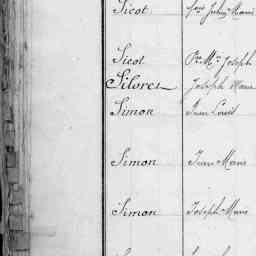 Sicot
Sicot Pre Mie Joseph
Silores Joseph Marie
Simon Jean Louis
Simon Jean Marie
Simon Joseph Marie